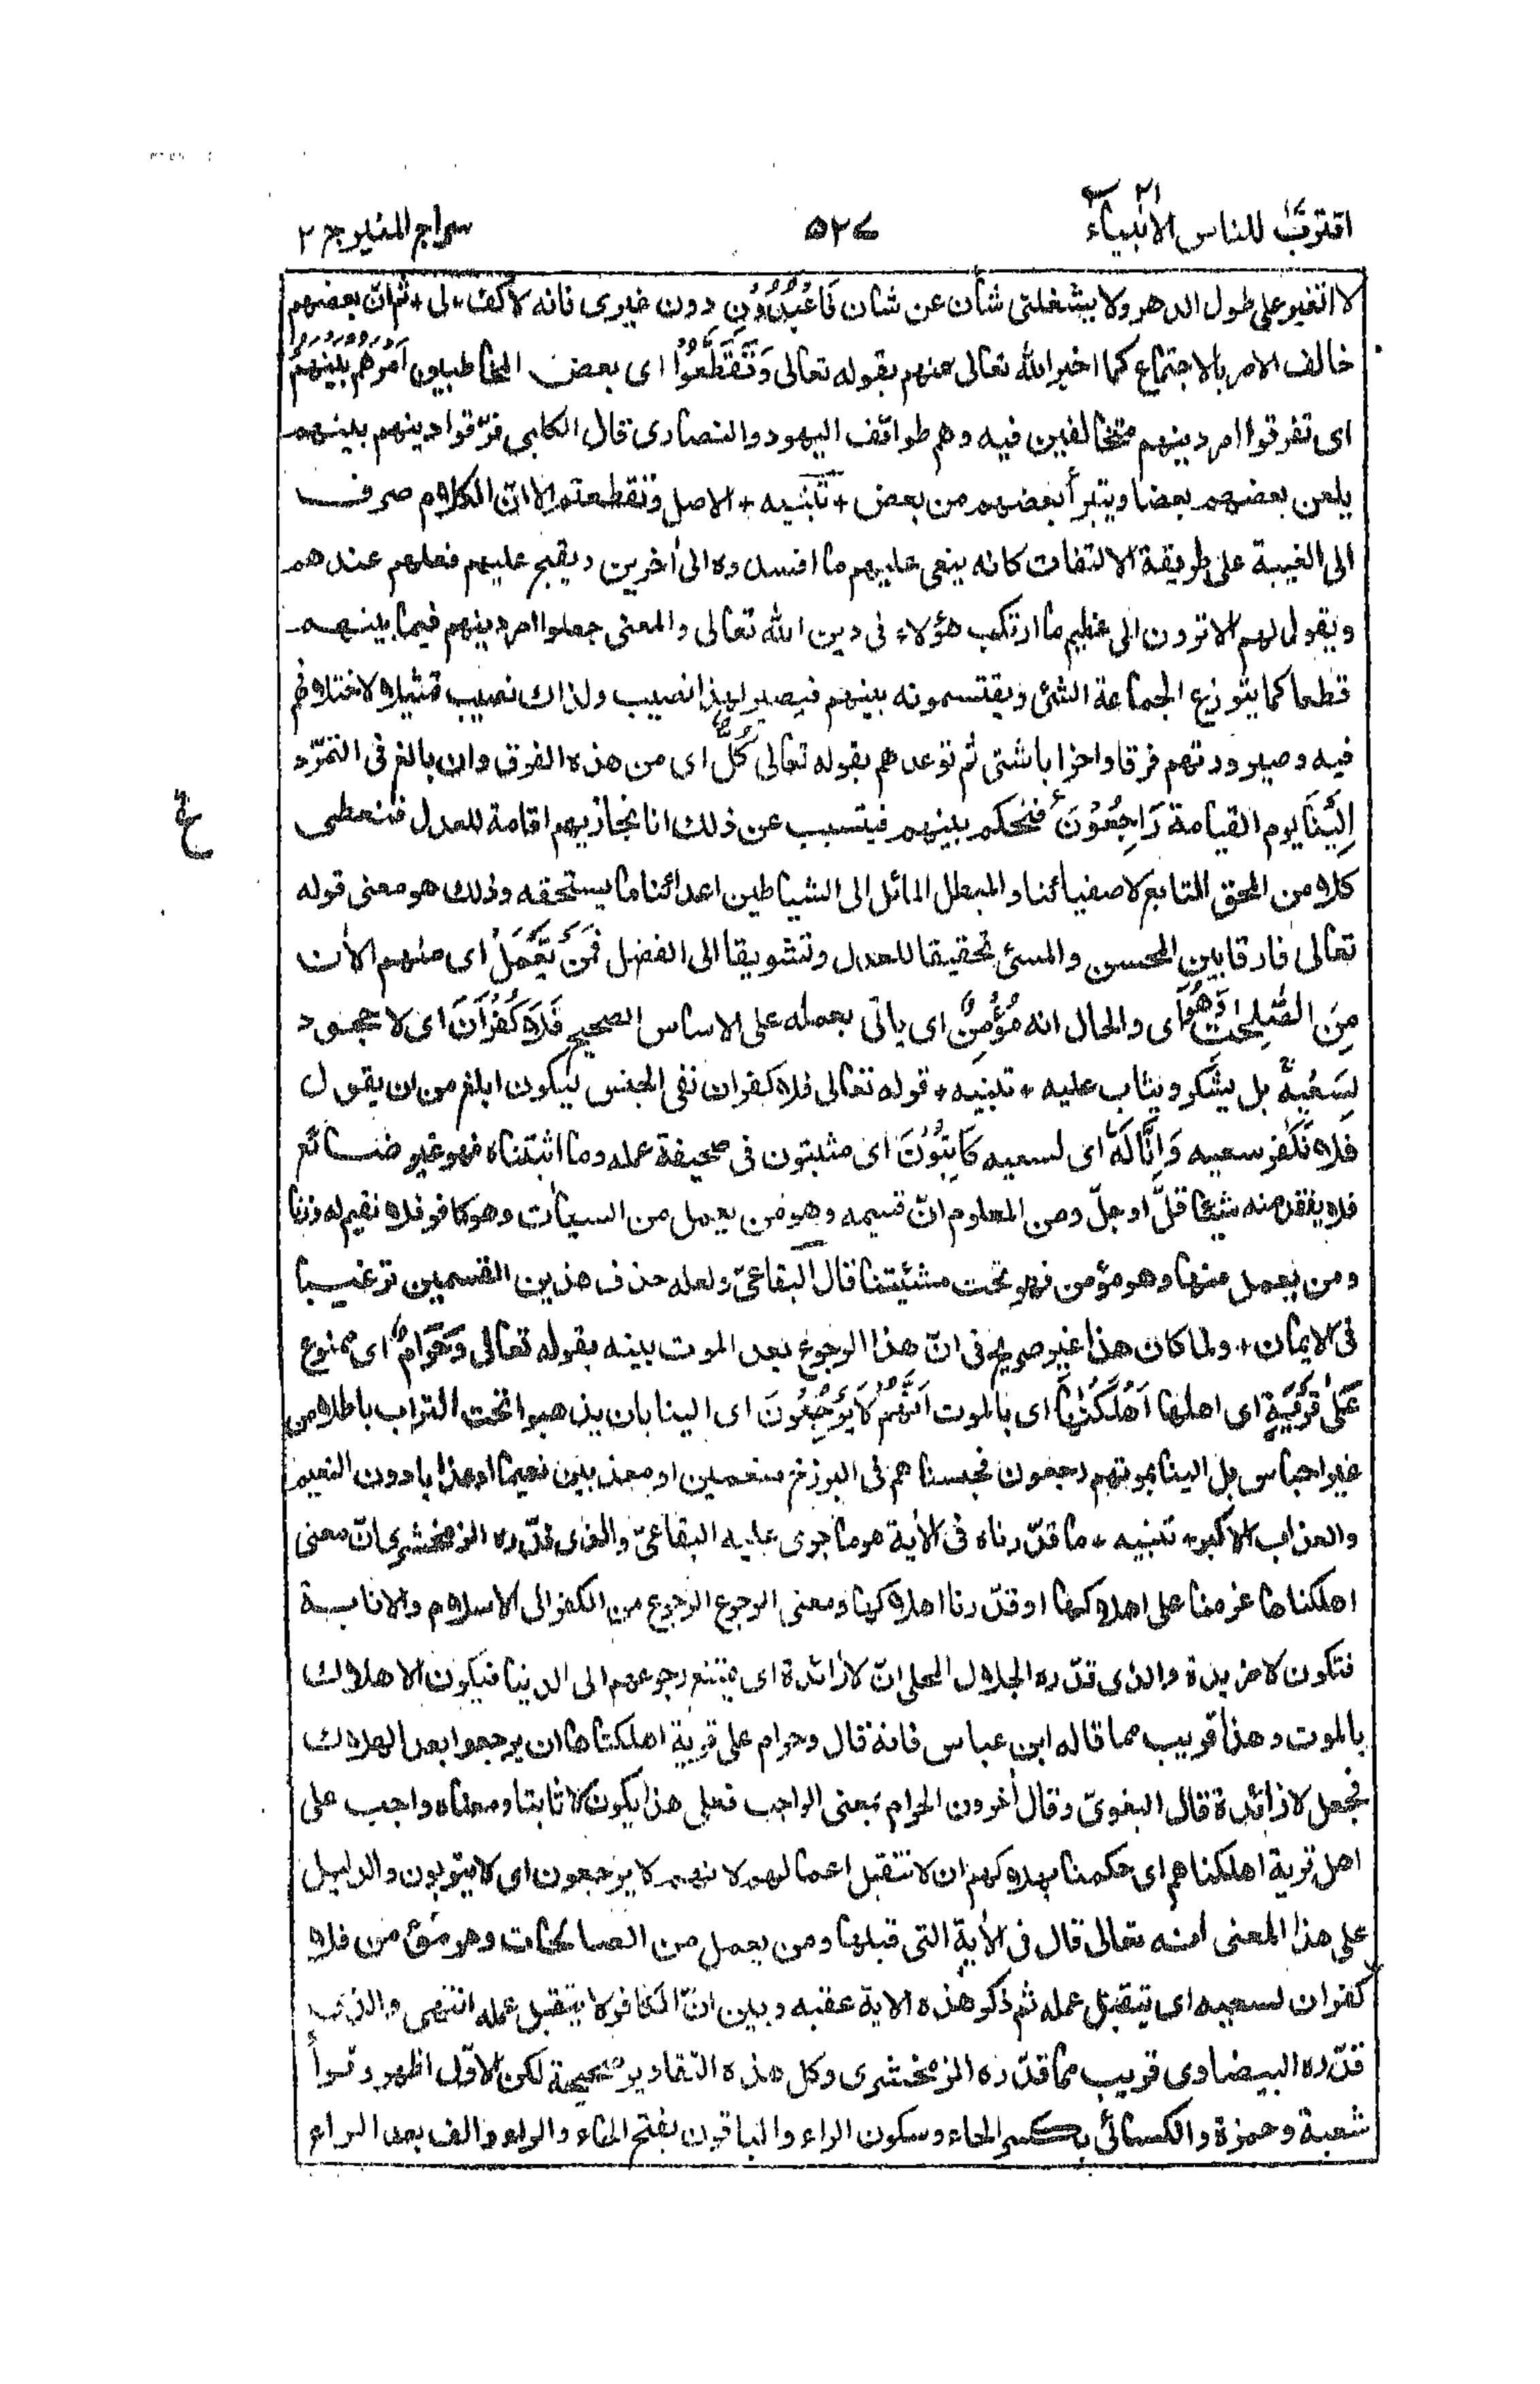 اقترب للناس١٧ الانبياء٢١
٥٢٧
سراج المنير ج ٢
لا اتغير على طول الدهر ولا يشغلنى شأن عن شان فَاعْبُدُوْنِ دون غيرى فانه لا كفء لى + ثم ان بعضهم
خالف الامر بالاجتماع كما اخبر الله تعالى عنهم بقوله تعالى وَتَقَطَّعُوْٓا اى بعض المخاطبيون اَمْرَهُمْ بَيْنَهُمْ
اى تفرقوا امر دينهم متخالفين فيه وهم طوائف اليهود والنصارى قال الكلبى فرّقوا دينهم بينهم
يلعن بعضهم بعضا ويتبرأ بعضهم من بعض + تنبيه + الاصل وتقطعتم الا ان الكلام صرف
الى الغيبة على طريقة الالتفات كانه ينعى عليهم ما افسدوه الى أخرين ويقبح عليهم فعلهم عندهم
ويقول لهم الا ترون الى عظيم ما ارتكب هؤلاء فى دين الله تعالى والمعنى جعلوا امر دينهم فيما بينهم
قطعا كما يتوزع الجماعة الشئ ويقتسمونه بينهم فيصير لهذا نصيب ولذاك نصيب تمثيلا لاختلافهم
فيه وصيرورتهم فرقا واحزابا شتى ثم توعدهم بقوله تعالى كُلٌّ اى من هذه الفرق وان بالغ فى التمرّد
اِلَيْنَا يوم القيامة رَاجِعُوْنَ فنحكم بينهم فيتسبب عن ذلك انا نجازيهم اقامة للعدل فنعطى
كلا من المحق التابع لاصفيائنا والمبطل المائل الى الشياطين اعدائنا ما يستحقه وذلك هو معنى قوله
تعالى فارقا بين المحسن والمسئ تحقيقا للعدل وتشويقا الى الفضل فَمَنْ يَّعْمَلْ اى منهم الأن
مِنَ الصّٰلِحٰتِ وَهُوَ اى والحال انه مُؤْمِنٌ اى ياتى بعمله على الاساس الصحيح فَلَا كُفْرَانَ اى لا جحود
لِسَعْيِهٖ بل يشكر ويثاب عليه + تنبيه + قوله تعالى فلا كفران نفى الجنس ليكون ابلغ من ان يقول
فلا نكفر سعيه وَاِنَّا لَهٗ اى لسعيه كَاتِبُوْنَ اى مثبتون فى صحيفة عمله وما اثبتناه فهو غير ضائع
فلا يفقد منه شيئا قلّ او جلّ ومن المعلوم انّ قسيمه وهو من يعمل من السيأت وهو كافر فلا نقيم له وزنا
ومن يعمل منها وهو مؤمن فهو تحت مشئيتنا قال البقاعىّ ولعله حذف هذين القسمين ترغيبا
فى الايمان + ولما كان هذا غير صريح فى انّ هذا الرجوع بعد الموت بينه بقوله تعالى وَحَرَامٌ اى ممنوع
عَلٰى قَرْيَةٍ اى اهلها اَهْلَكْنٰهَآ اى بالموت اَنَّهُمْ لَا يَرْجِعُوْنَ اى الينا بان يذهبوا تحت التراب باطلا من
غير احساس بل الينا بموتهم رجعون فحبسناهم فى البرزخ منعمين او معذبين نعيما او عذابا دون النعيم
والعذاب الاكبر + تنبيه + ما قدّرناه فى الأية هو ما جرى عليه البقاعىّ والذى قدّره الزمخشرى انّ معنى
اهلكناها عزمنا على اهلاكها او قدّرنا اهلاكها ومعنى الرجوع الرجوع من الكفر الى الاسلام والانابة
فتكون لا مزيدة والذى قدّره الجلال المحلى انّ لا زائدة اى يمتنع رجوعهم الى الدنيا فيكون الاهلاك
بالموت وهذا قريب مما قاله ابن عباس فانه قال وحرام على قرية اهلكناها ان يرجعوا بعد الهلاك
فجعل لا زائدة قال البغوىّ وقال أخرون الحرام بمعنى الواجب فعلى هذا يكون لا ثابتا ومعناه واجب على
اهل قرية اهلكناهم اى حكمنا بهلاكهم ان لا تتقبل اعمالهم لانهم لا يرجعون اى لا يتوبون والدليل
على هذا المعنى انه تعالى قال فى الأية التى قبلها ومن يعمل من الصالحات وهو مؤمن فلا
كفران لسعيه اى يتقبل عمله ثم ذكر هذه الاية عقبه وبين انّ الكافر لا يتقبل عمله انتهى والذى
قدّره البيضاوى قريب مما قدّره الزمخشرى وكل هذه التقادير صحيحة لكن الاوّل اظهر وقرأ
شعبة وحمزة والكسائى بكسر الحاء وسكون الراء والباقون بفتح الحاء والراء والف بعد الراء
ع